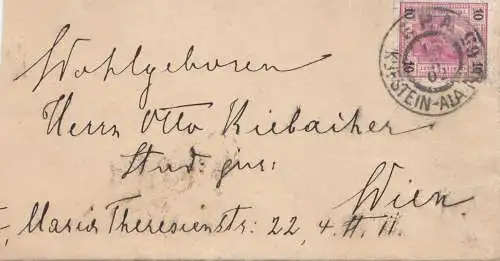 10 10
10 10
K.K. POSTAMBULANCE
KUFSTEIN-ALA
Wohlgeboren
Herrn Otto Kiebacher
Stud: jur:
Wien.
I, Maria Theresienstr: 22, 4. St. 11.